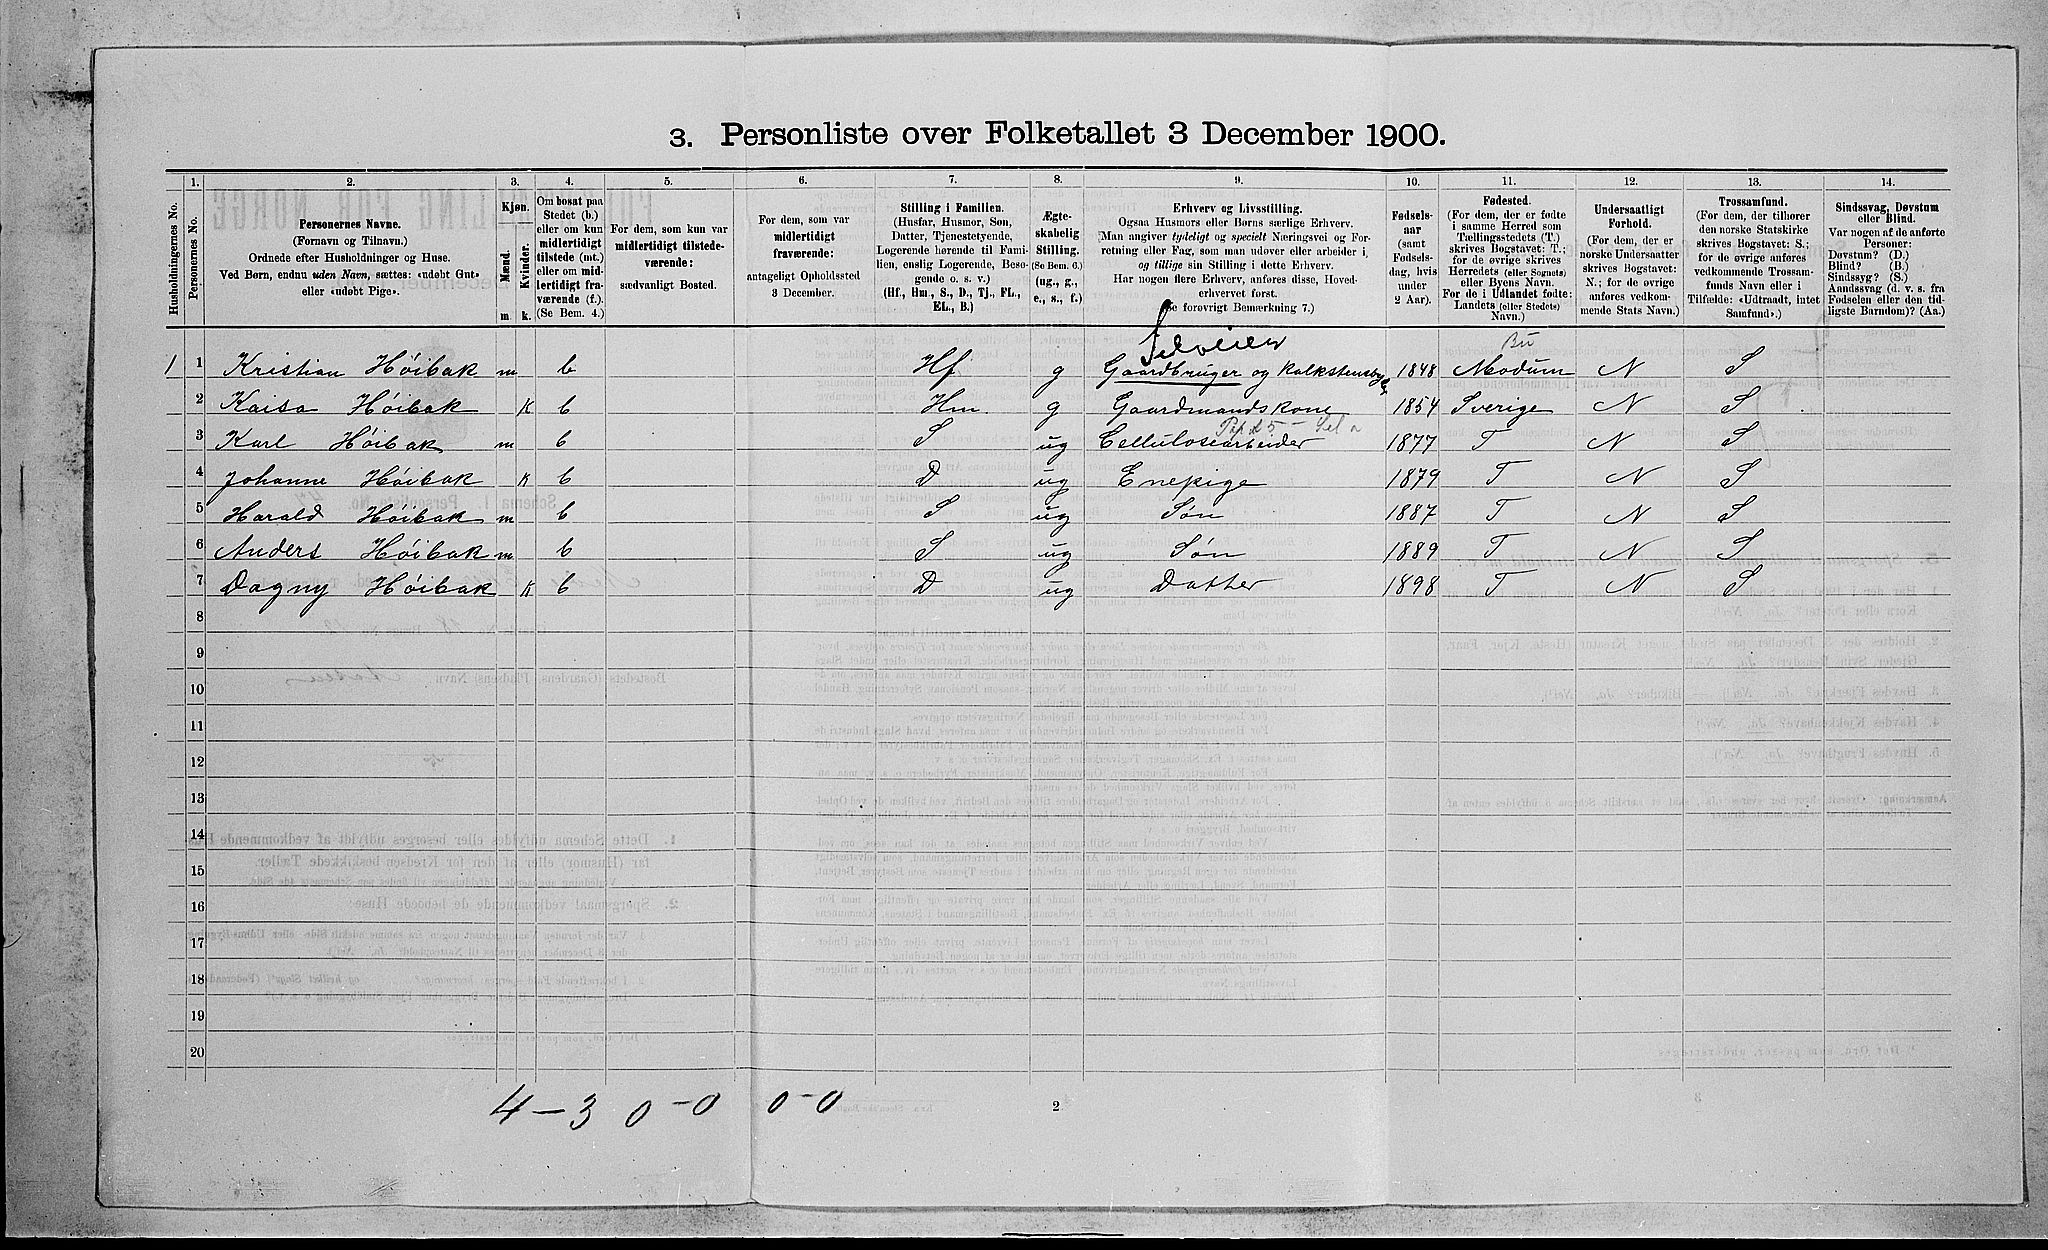 3. Personliste over Folketallet 3 December 1900.
1. 2. 3. 4. 5. 6. 7. 8. 9. 10. 11. 12. 13. 14.
Husholdningernes No.
Personernes No.
Personernes Navne.
(Fornavn og Tilnavn.)
Ordnede efter Husholdninger og Huse.
Ved Børn, endnu uden Navn, sættes: «udøbt Gut»
eller «udøbt Pige».
Kjøn.
Mænd.
Kvinder.
m. k.
Om bosat paa
Stedet (b.)
eller om kun
midlertidigt
tilstede (mt.)
eller om mid-
lertidigt fra-
værende (f.).
(Se Bem. 4.)
For dem, som kun var
midlertidigt tilstede-
værende:
sædvanligt Bosted.
For dem, som var
midlertidigt
fraværende:
antageligt Opholdssted
3 December.
Stilling i Familien.
(Husfar, Husmor, Søn,
Datter, Tjenestetyende,
Logerende hørende til Fami-
lien, enslig Logerende, Besø-
gende o. s. v.)
(Hf., Hm., S., D., Tj., FL.,
EL., B.)
Ægte-
skabelig
Stilling.
(Se Bem. 6.)
(ug., g.,
e., s., f.)
Erhverv og Livsstilling.
Ogsaa Husmors eller Børns særlige Erhverv.
(Man angiver tydeligt og specielt Næringsvei og For-
retning eller Fag, som man udøver eller arbeider i,
og tillige sin Stilling i dette Erhverv.
Har nogen flere Erhverv, anføres disse, Hoved-
erhvervet først.
(Se forøvrigt Bemærkning 7.)
Fødsels-
aar
(samt
Fødsels-
dag, hvis
under
2 Aar).
Fødested.
(For dem, der er fødte
i samme Herred som
Tællingsstedets (T.)
skrives Bogstavet: T.;
for de øvrige skrives
Herredets (eller Sognets)
eller Byens Navn.
For de i Udlandet fødte:
Landets (eller Stedets)
Navn.)
Undersaatligt
Forhold.
(For dem, der er
norske Undersaatter
skrives Bogstavet:
N.; for de øvrige
anføres vedkom-
mende Stats Navn.)
Trossamfund.
(For dem, der tilhører
den norske Statskirke
skrives Bogstavet: S.;
for de øvrige anføres
vedkommende Trossam-
funds Navn eller i
Tilfælde: «Udtraadt, intet
Samfund».)
Sindssvag, Døvstum
eller Blind.
Var nogen af de anførte
Personer:
Døvstum? (D.)
Blind? (B.)
Sindssyg? (S.)
Aandssvag (d. v. s. fra
Fødselen eller den tid-
ligste Barndom)? (Aa.)
Selveier
Bu
1 1 Kristian Höibak m b Hf g Gaardbruger og Kalkstensbr 1848 Modum N S
2 Kaisa Höibak K b Hm. g Gaardmandskone 1854 Sverige N S
3 Karl Höibak m b S ug Cellulosearbeider 1877 T N S
4 Johanne Höibak K b D ug Enepige 1879 T N S
5 Harald Höibak m b S ug Søn 1887 T N S
6 Anders Höibak m b S ug Søn 1889 T N S
7 Dagny Höibak K b D ug Datter 1898 T N S
8
9
10
11
12
13
14
15
16
17
18
19
20
4-3 0-0 0-0
2